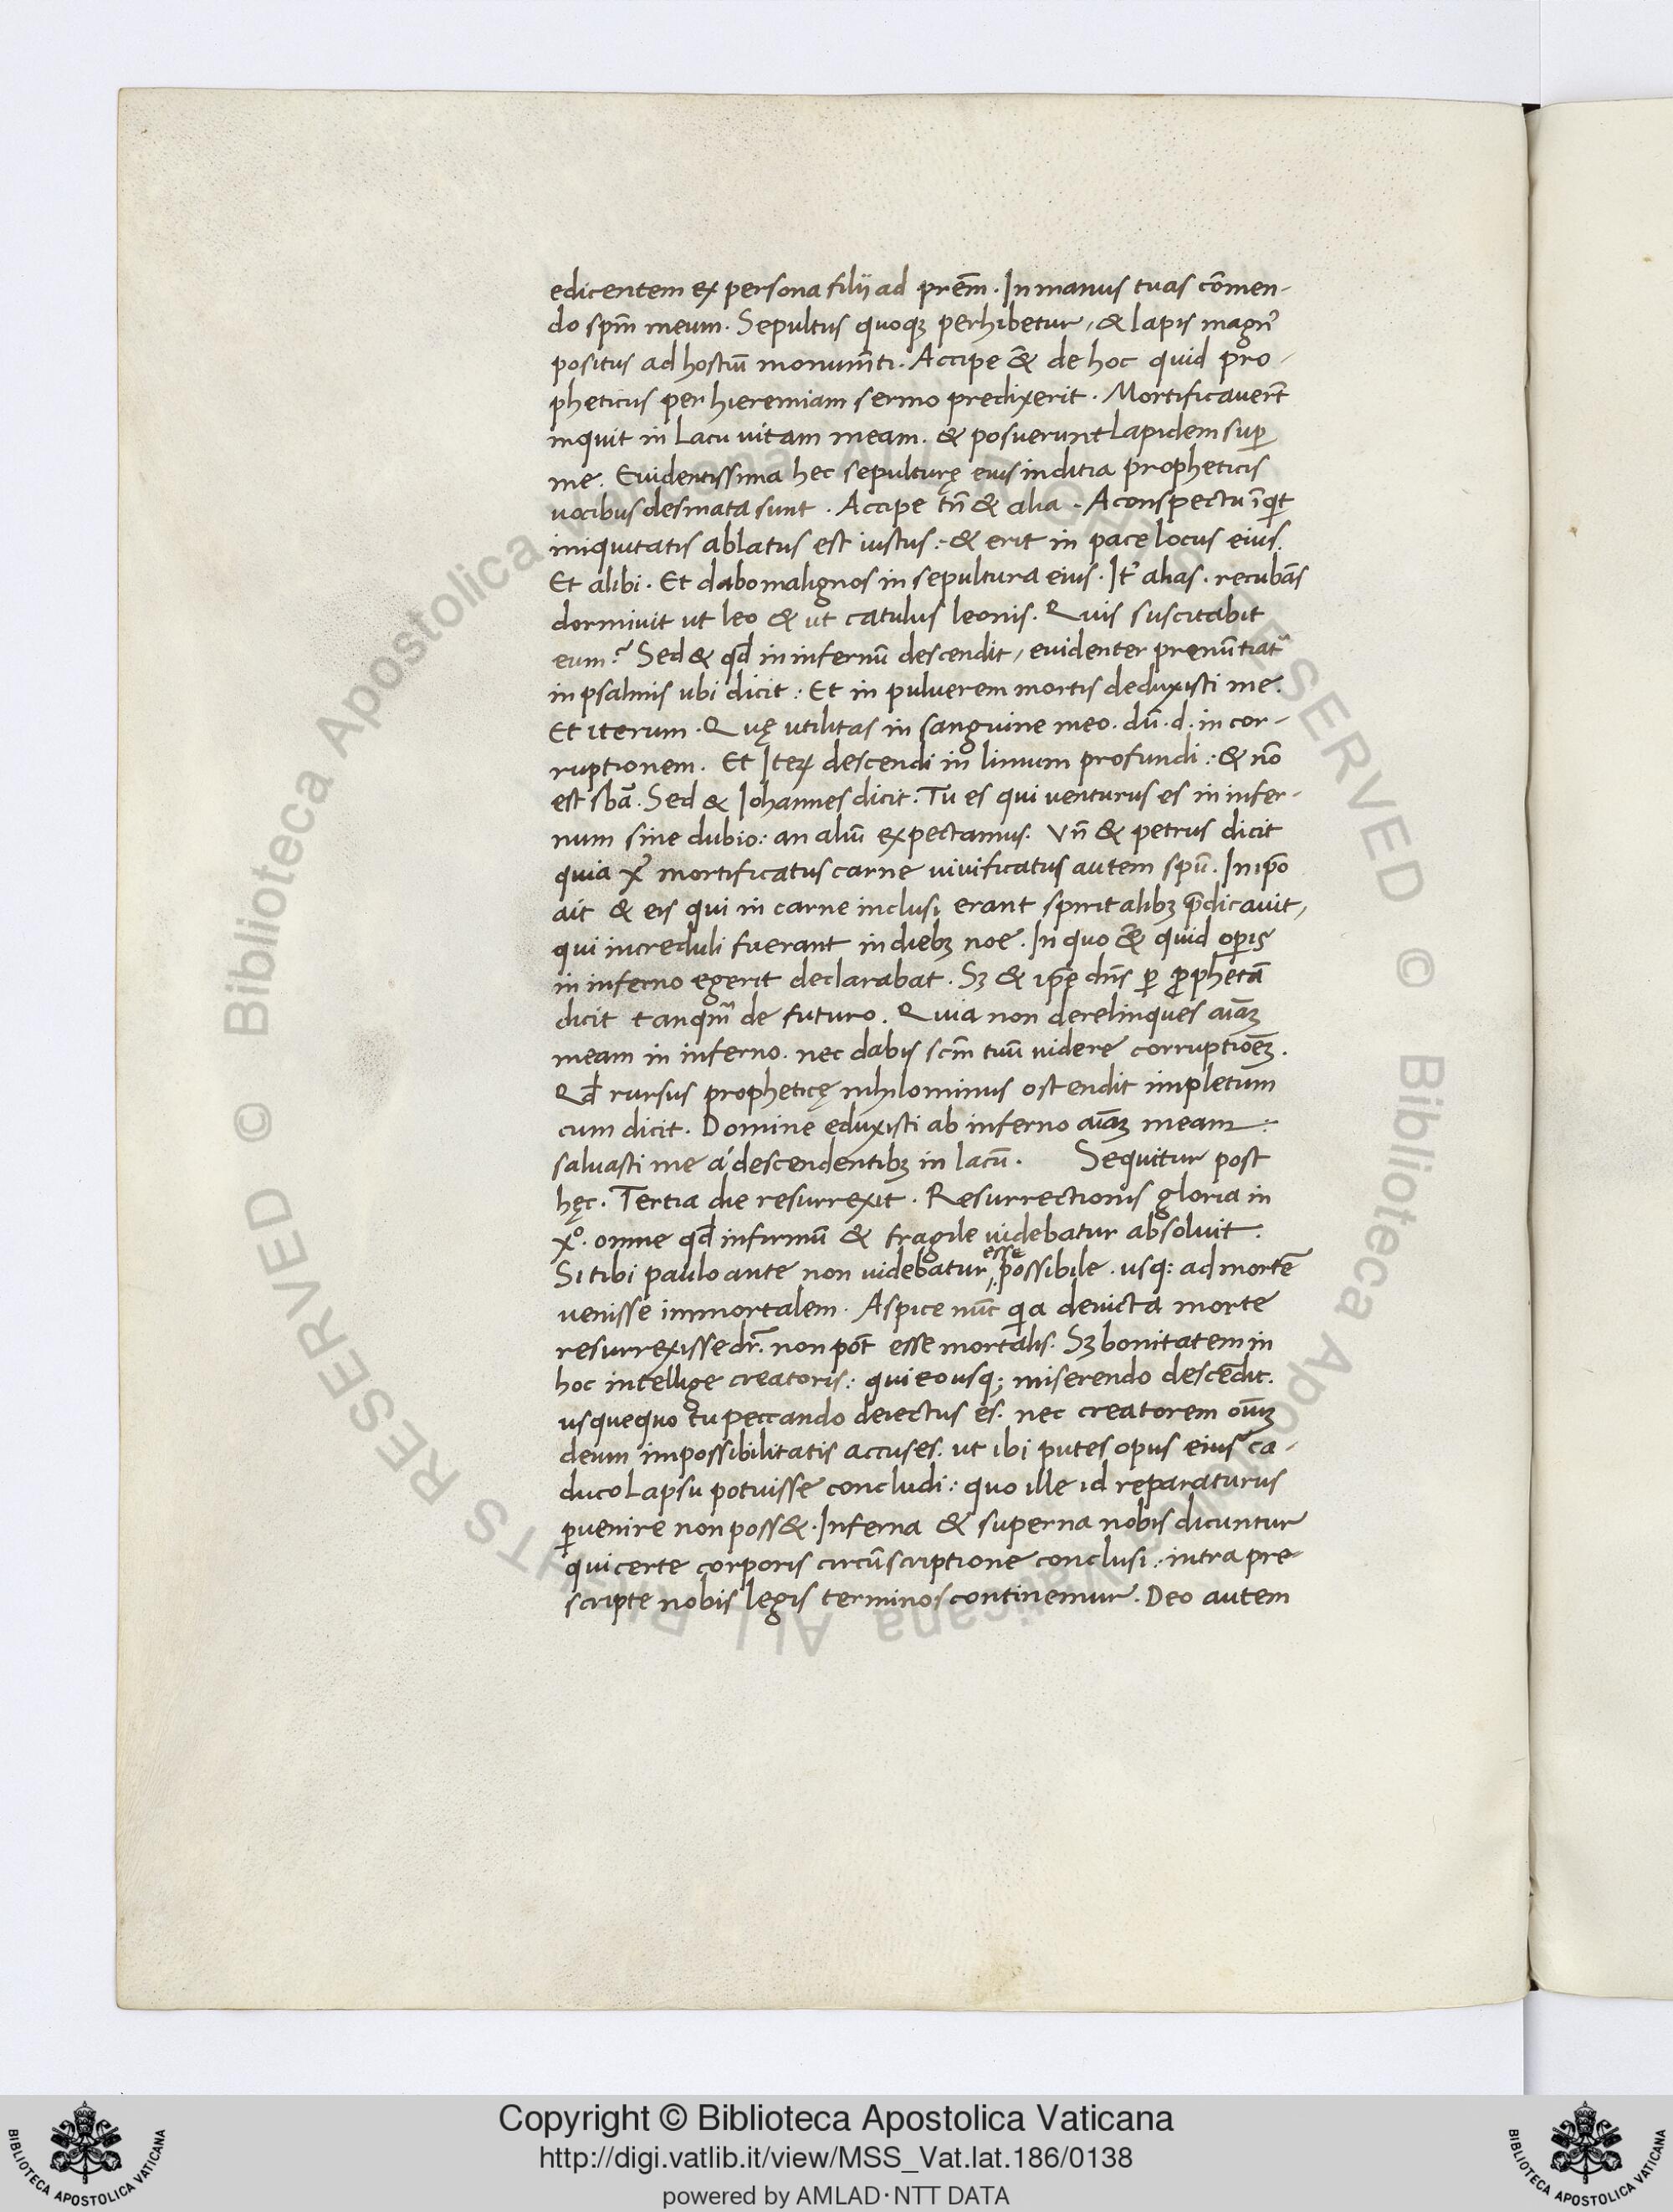 edicentem ex persona filii ad prēm. In manus tuas cōmen-
do spm̄ meum. Sepultus quoqꝫ perhibetur, & lapis magnꝰ
positus ad hostiū monum̄ti. Accipe &̄ de hoc quid pro-
pheticus per hieremiam sermo predixerit. Mortificauer̄t
inquit in Lacu vitam meam. & posuerunt Lapidem suꝑ
me. Euidentissima hec sepulturę eius inditia propheticis
uocibus desinata sunt. Accipe tn̄ & alia. A conspectu īqt
iniquitatis ablatus est iustus: & erit in pace locus eius.
Et alibi. Et dabo malignos in sepultura eius. It' alias. recubās
dormiuit ut leo & ut catulus leonis. Quis suscitabit
eum? Sed & qđ in infernū descendit, euidenter pręnūtiat᷑
in psalmis ubi dicit: Et in puluerem mortis deduxisti me.
Et iterum. Quę utilitas in sanguine meo. dū. d. in cor-
ruptionem. Et Iteꝝ descendi in limum profundi: & nō
est sbā. Sed & Iohannes dicit. Tu es qui venturus es in infer-
num sine dubio: an aliū expectamus. Vn̄ & petrus dicit
quia xꝰ mortificatus carne viuificatus autem spū. In ip̄o
ait & eis qui in carne inclusi erant spiritalibꝫ p̄dicauit,
qui increduli fuerant in diebꝫ noe. In quo &̄ quid oꝑis
in inferno egerit declarabat. Sꝫ & ip̄e dn̄s ꝑ ꝓphetā
dicit tanqm̄ de futuro. Quia non derelinques aīaꝫ
meam in inferno. nec dabis scm̄ tuū uidere corruptiōeꝫ.
Qđ rursus propheticę nihilominus ostendit impletum
cum dicit. Domine eduxisti ab inferno aīaꝫ meam:
saluasti me á descendentibꝫ in lacū. Sequitur post
hęc. Tertia die resurrexit. Resurrectionis gloria in
xº. omne qđ infirmū & fragile uidebatur absoluit.
Si tibi paulo ante non uidebatur esse possibile. usq: ad mortē
uenisse immortalem. Aspice nūc qa deuicta morte
resurrexisse dr̄. non pōt esse mortalis. Sꝫ bonitatem in
hoc intellige creatoris: qui eo usq; miserendo descēdit.
usquequo tu peccando deiectus es. nec creatorem oīuꝫ
deum impossibilitatis accuses. ut ibi putes opus eius ca-
duco Lapsu potuisse concludi: quo ille id reparaturus
ꝑuenire non poss&. Inferna & superna nobis dicuntur
qui certe corporis circūscriptione conclusi: intra pre-
scripte nobis legis terminos continemur. Deo autem
© Biblioteca Apostolica Vaticana ALL RIGHTS RESERVED © Biblioteca Apostolica Vaticana ALL RIGHTS RESERVED
Copyright © Biblioteca Apostolica Vaticana
http://digi.vatlib.it/view/MSS_Vat.lat.186/0138
powered by AMLAD·NTT DATA
BIBLIOTECA APOSTOLICA VATICANA
BIBLIOTECA APOSTOLICA VATICANA